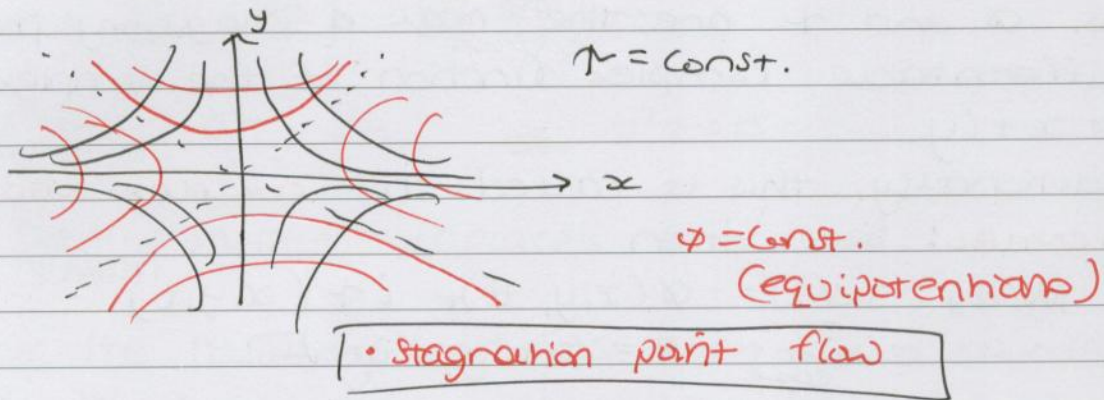 y
ψ = const.
x
φ = const.
(equipotentials)
• stagnation point flow